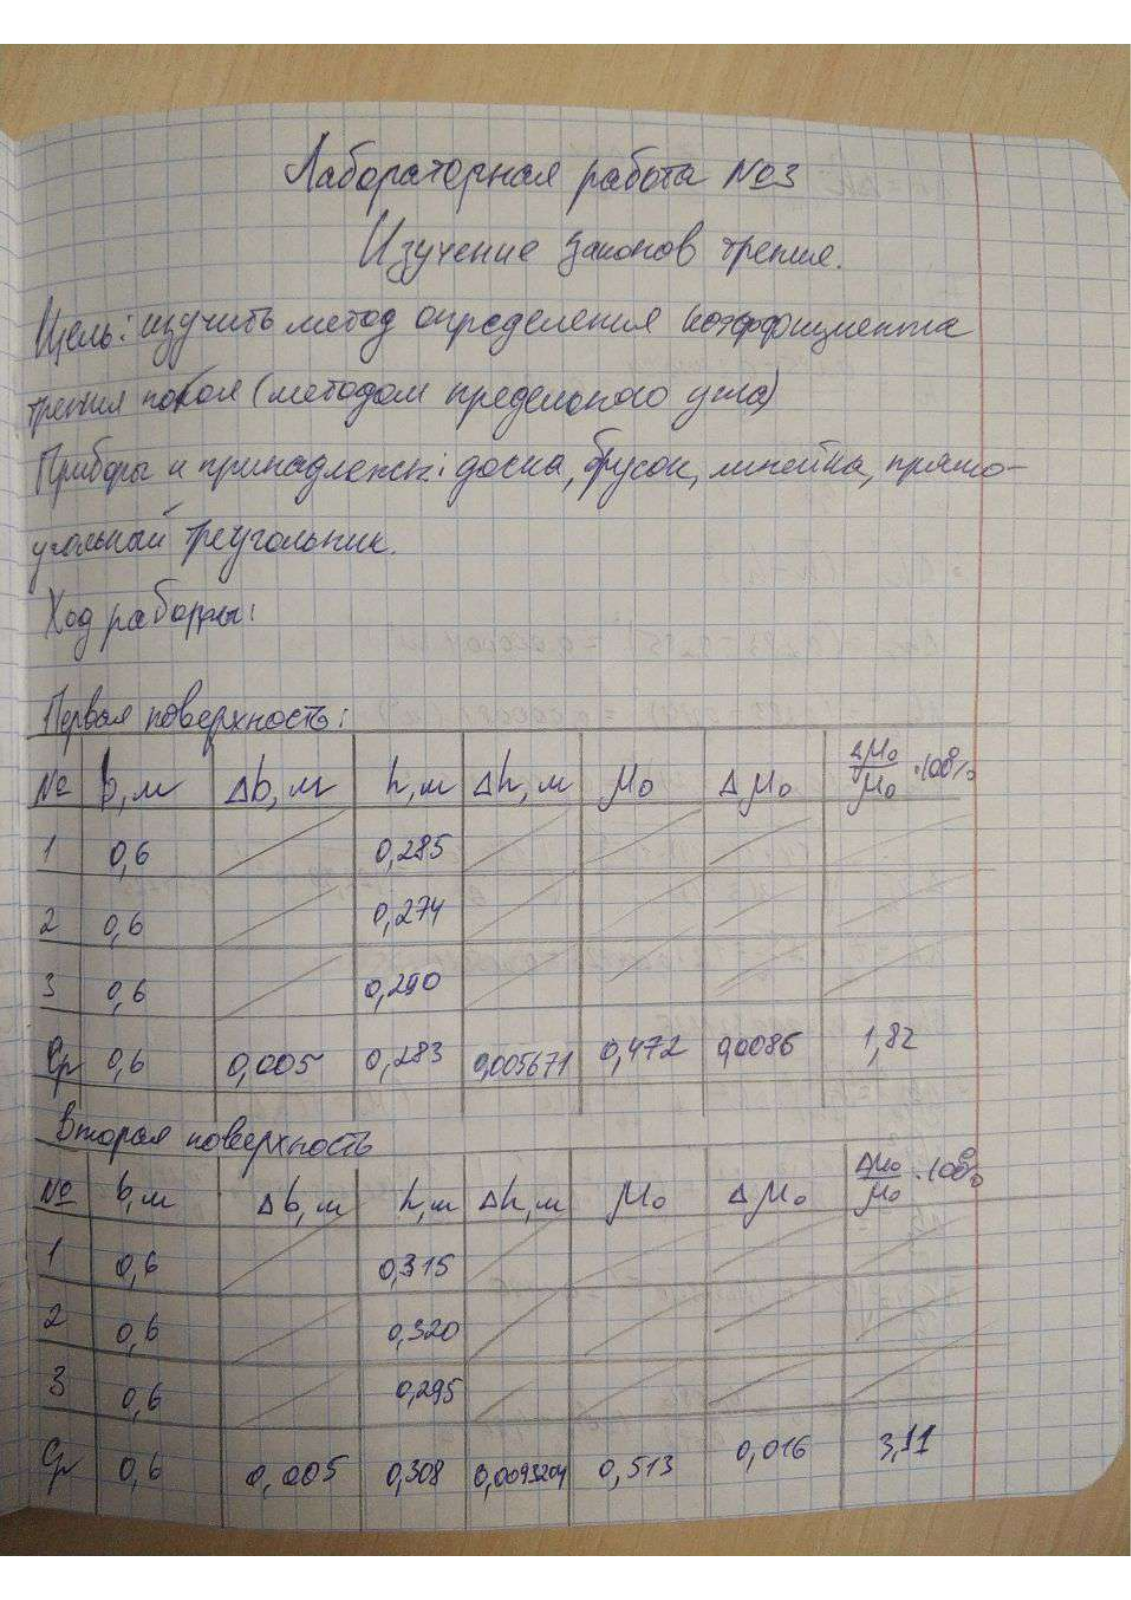 Лабораторная работа №3
Изучение законов трения.
Цель: изучить метод определения коэффициента
трения покоя (методом предельного угла)
Приборы и принадлежн.: доска, брусок, линейка, прямо-
угольный треугольник.
Ход работы:
Первая поверхность:
№ b,м Δb,м h,м Δh,м μ₀ Δμ₀ Δμ₀/μ₀ ·100%
1 0,6 0,285
2 0,6 0,274
3 0,6 0,290
Ср 0,6 0,005 0,283 0,005671 0,472 0,0086 1,82
Вторая поверхность
№ b,м Δb,м h,м Δh,м μ₀ Δμ₀ Δμ₀/μ₀ ·100%
1 0,6 0,315
2 0,6 0,320
3 0,6 0,295
Ср 0,6 0,005 0,308 0,0093204 0,513 0,016 3,11